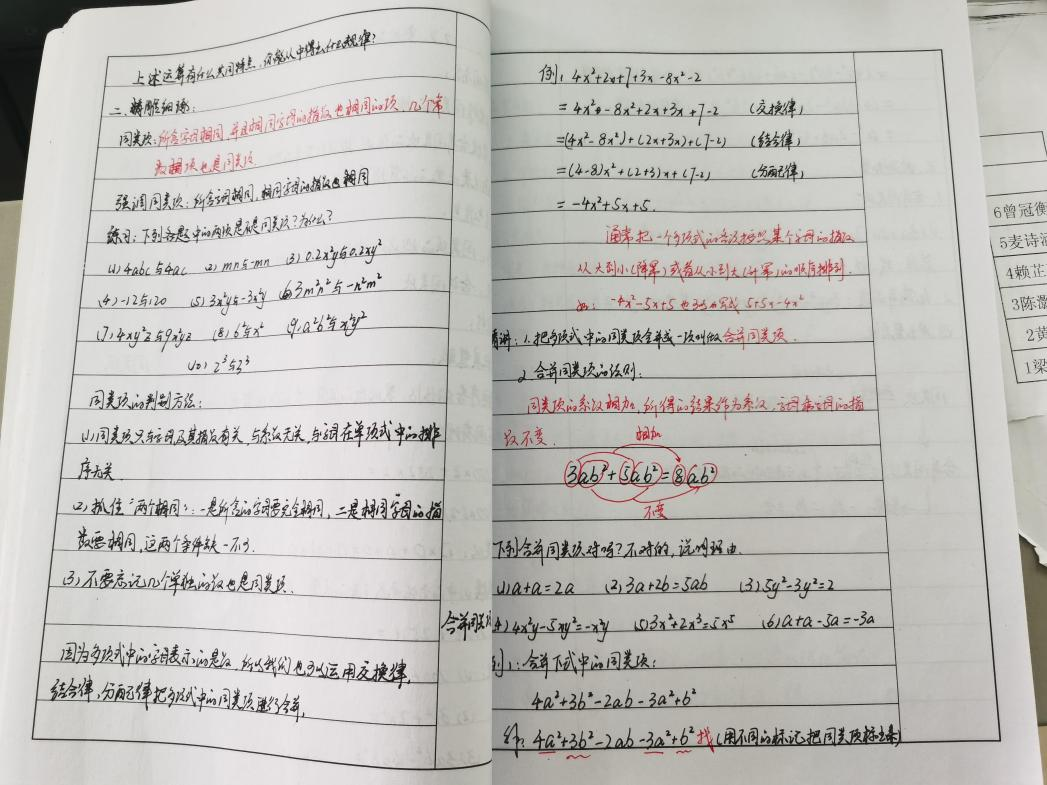 上述运算有什么共同特点,你能从中得出什么规律?
二、精醒细琢:
同类项:所含字母相同,并且相同字母的指数也相同的项,几个常
数项也是同类项.
强调同类项:所含字母相同,相同字母的指数也相同
练习:下列各题中的两项是不是同类项?为什么?
(1)4abc与4ac (2)mn与-mn (3)0.2x²y与0.2xy²
(4)-12与120 (5)3x²y与-3x²y (6)3m²n²与-n²m²
(7)4xy²z与9xyz (8)6²与x² (9)a²b²与x²y²
(10)2³与3³
同类项的判别方法:
(1)同类项只与字母及其指数有关,与系数无关,与字母在单项式中的排
序无关.
(2)抓住"两个相同":一是所含的字母要完全相同,二是相同字母的指
数要相同,这两个条件缺一不可.
(3)不要忘记几个单独的数也是同类项.
因为多项式中的字母表示的是数,所以我们也可以运用交换律,
结合律,分配律把多项式中的同类项进行合并.
例:4x²+2x+7+3x-8x²-2
=4x²-8x²+2x+3x+7-2 (交换律)
=(4x²-8x²)+(2x+3x)+(7-2) (结合律)
=(4-8)x²+(2+3)x+(7-2) (分配律)
=-4x²+5x+5.
通常把一个多项式的各项按照某个字母的指数
从大到小(降幂)或者从小到大(升幂)的顺序排列.
如:-4x²-5x+5也可以写成5+5x-4x²
讲:1.把多项式中的同类项合并成一项叫做合并同类项.
2.合并同类项的法则:
同类项的系数相加,所得的结果作为系数,字母和字母的指
数不变.
相加
3ab²+5ab²=8ab²
不变
下列合并同类项对吗?不对的,说明理由.
(1)a+a=2a (2)3a+2b=5ab (3)5y²-3y²=2
合并同类项
(4)4x²y-5xy²=-x²y (5)3x²+2x³=5x⁵ (6)a+a-5a=-3a
例1:合并下式中的同类项:
4a²+3b²-2ab-3a²+b²
解:4a²+3b²-2ab-3a²+b²找(用不同的标记把同类项标出来)
6曾冠衡
5麦诗
4赖芷
3陈
2黄
1梁